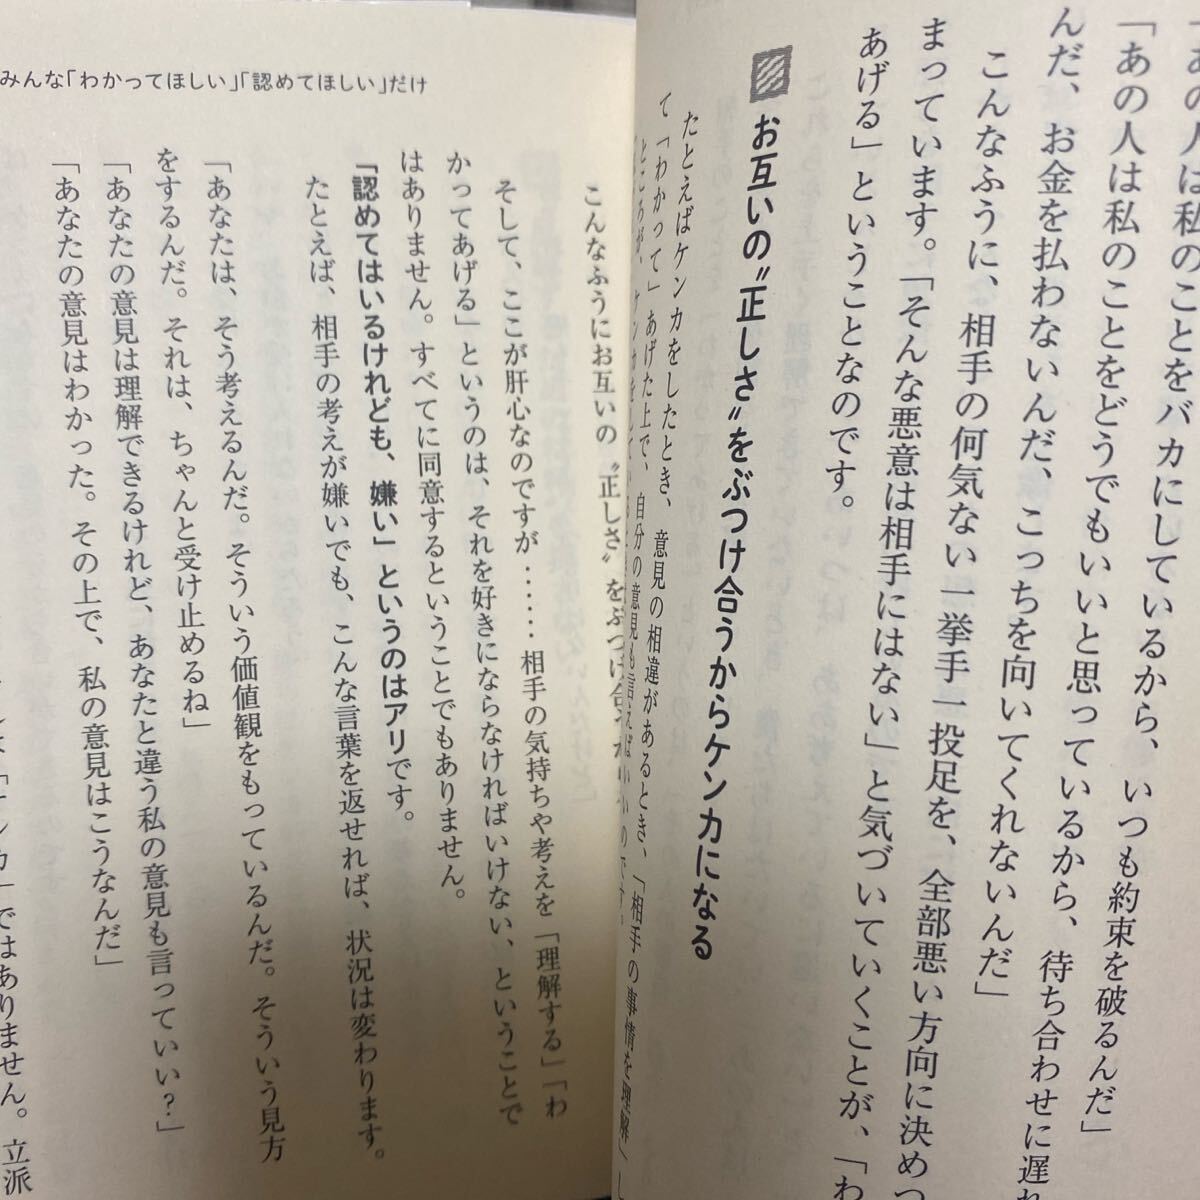 あの人は私のことをバカにしているから、いつも約束を破るんだ」
「あの人は私のことをどうでもいいと思っているから、待ち合わせに遅れ
んだ、お金を払わないんだ、こっちを向いてくれないんだ」
こんなふうに、相手の何気ない一挙手一投足を、全部悪い方向に決めつ
まっています。「そんな悪意は相手にはない」と気づいていくことが、「わ
あげる」ということなのです。
お互いの〝正しさ〟をぶつけ合うからケンカになる
たとえばケンカをしたとき、意見の相違があるとき、「相手の事情を理解」し
て「わかって」あげた上で、自分の意見も言えばいいのです。
ところが、ケンカをしている
こんなふうにお互いの〝正しさ〟をぶつけ合
そして、ここが肝心なのですが……相手の気持ちや考えを「理解する」「わ
かってあげる」というのは、それを好きにならなければいけない、ということで
はありません。すべてに同意するということでもありません。
「認めてはいるけれども、嫌い」というのはアリです。
たとえば、相手の考えが嫌いでも、こんな言葉を返せれば、状況は変わります。
「あなたは、そう考えるんだ。そういう価値観をもっているんだ。そういう見方
をするんだ。それは、ちゃんと受け止めるね」
「あなたの意見は理解できるけれど、あなたと違う私の意見も言っていい？」
「あなたの意見はわかった。その上で、私の意見はこうなんだ」
ではありません。立派
みんな「わかってほしい」「認めてほしい」だけ